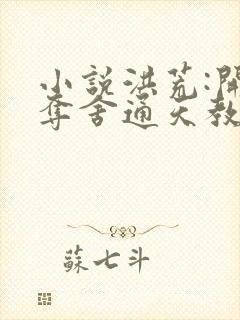 小說洪荒:開
奪舍通天教
蘇七斗